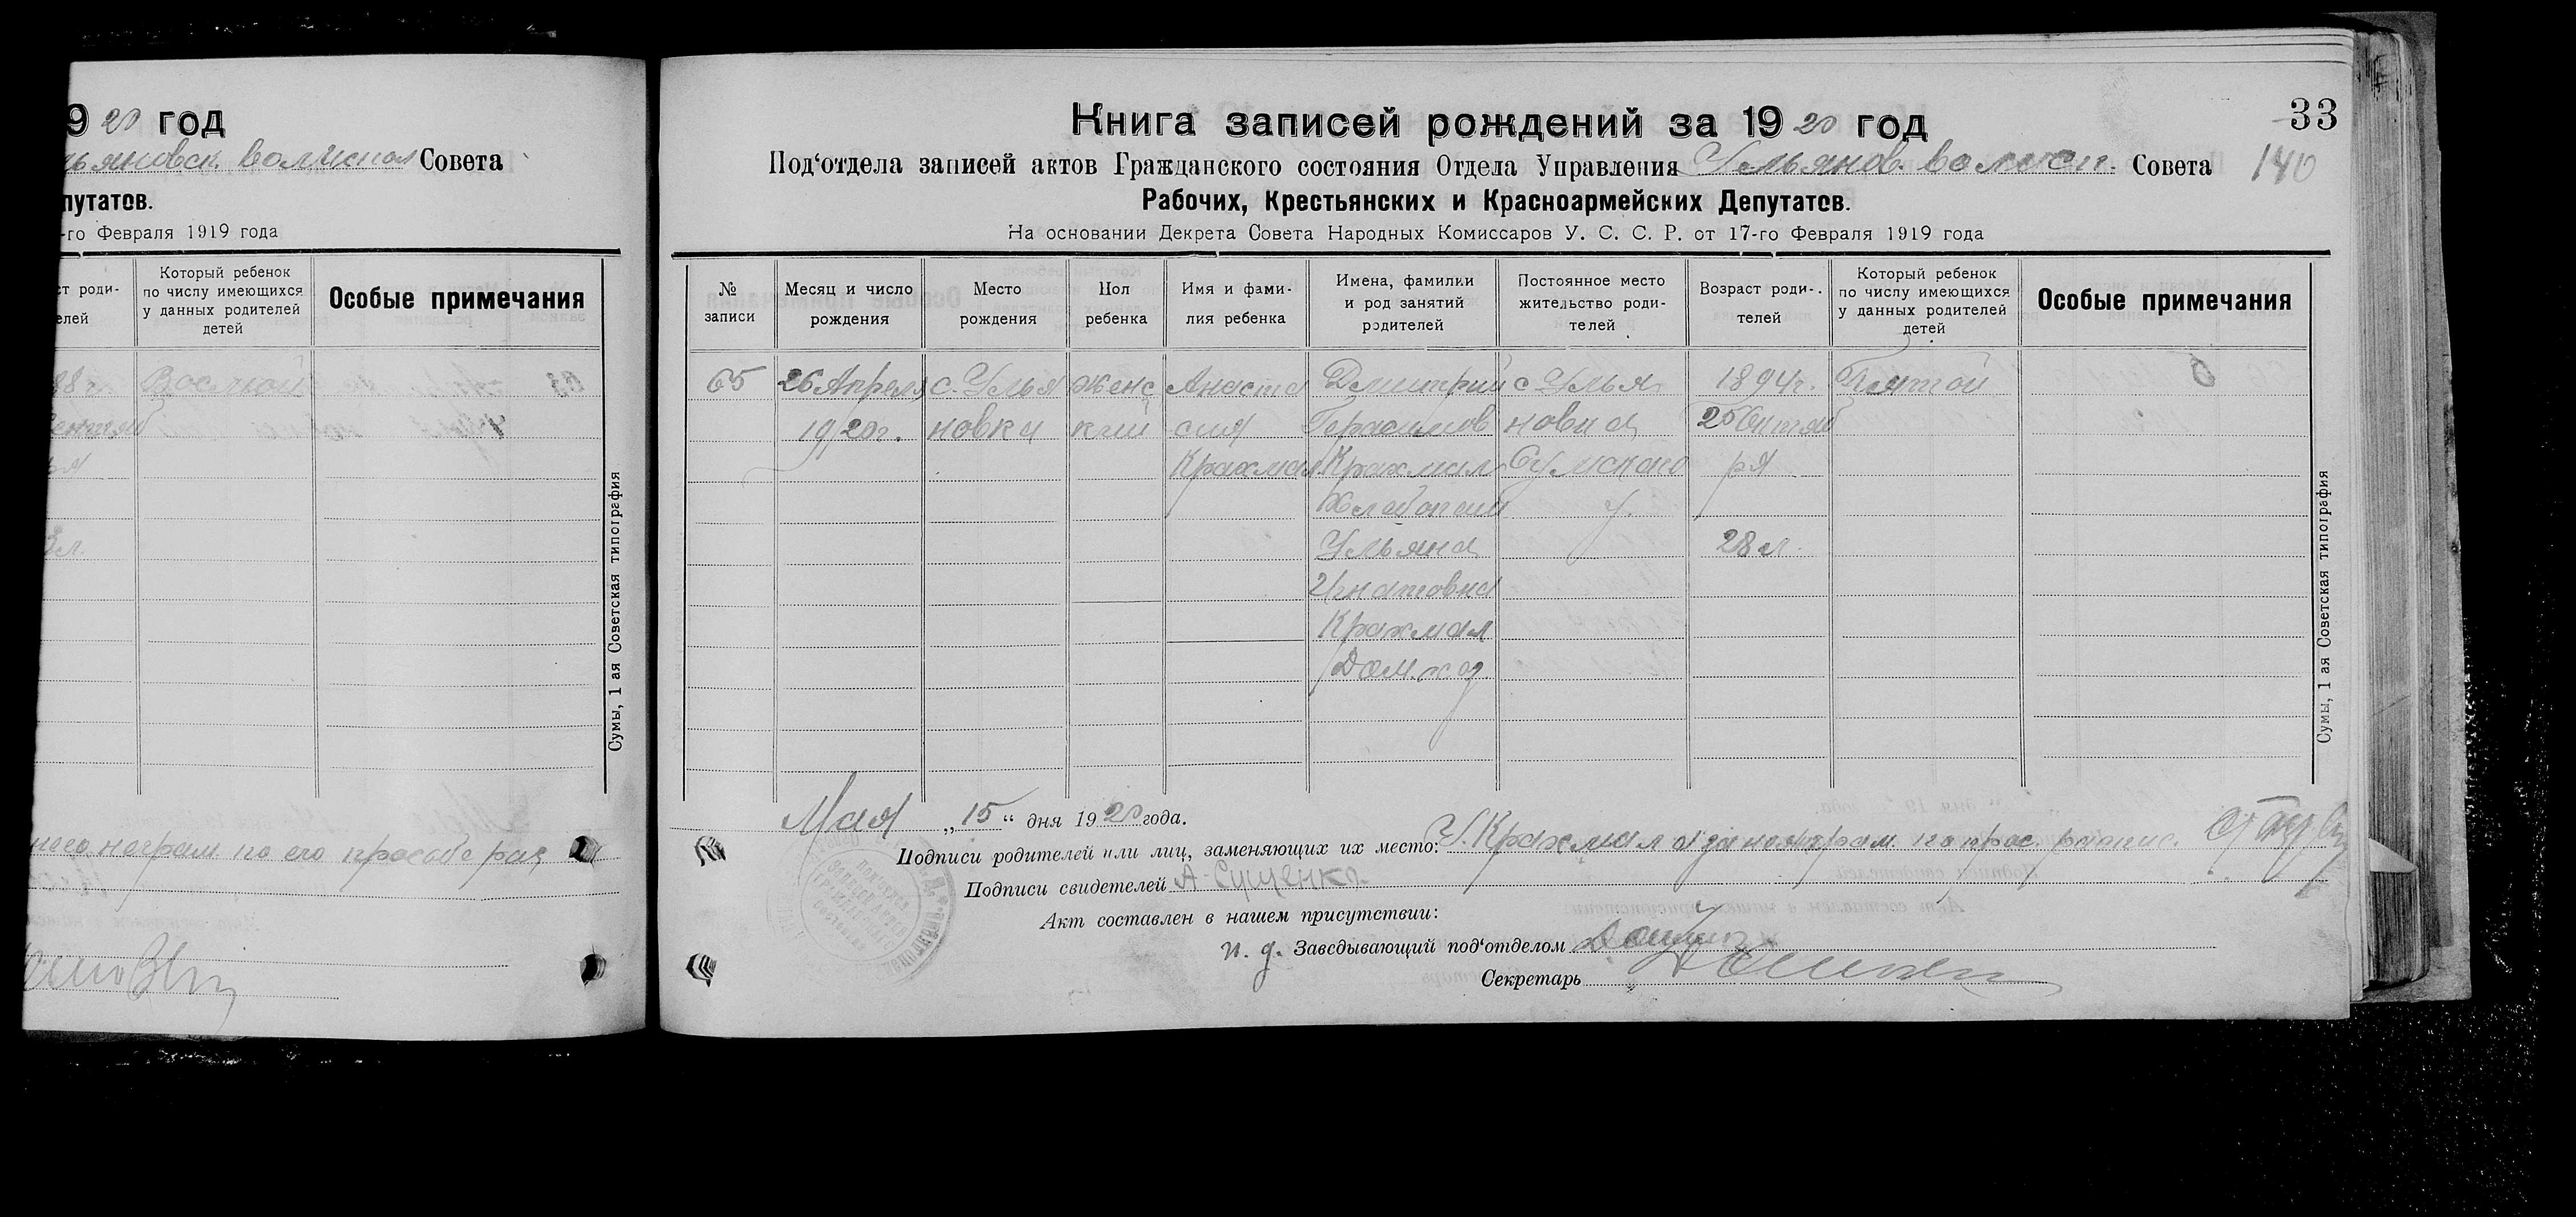 9 20 год
льяновск. волиспол Совета
путатов.
-го Февраля 1919 года
ст роди-
елей
Который ребенок
по числу имеющихся
у данных родителей
детей
Особые примечания
88 г. Восьмой
Сумы, 1 ая Советская типография
неграм. по его просьбе рас
Книга записей рождений за 19 20 год
33
Под‘отдела записей актов Гражданского состояния Отдела Управления Ульянов. волисп. Совета
140
Рабочих, Крестьянских и Красноармейских Депутатов.
На основании Декрета Совета Народных Комиссаров У. С. С. Р. от 17-го Февраля 1919 года
№
записи
Месяц и число
рождения
Место
рождения
Пол
ребенка
Имя и фами-
лия ребенка
Имена, фамилии
и род занятий
родителей
Постоянное место
жительство роди-
телей
Возраст роди-
телей
Который ребенок
по числу имеющихся
у данных родителей
детей
Особые примечания
65 26 Апреля с. Улья женс Анаста Дмитрий с Улья 1894 г. Пятой
1920 г. новка кий сия Герасимов новка 25 Октяб
Крахмал Крахмал Сумского ря
Хлебопаш у.
Ульяна 28 л.
Игнатовна
Крахмал
Дом. хоз.
Сумы, 1 ая Советская типография
Мая „15“ дня 1920 года.
Подписи родителей или лиц, заменяющих их место: У. Крахмал а за неграм. по прос. роспис.
Подписи свидетелей А. Сущенко
Акт составлен в нашем присутствии:
и. д. Заведывающий под‘отделом
Секретарь